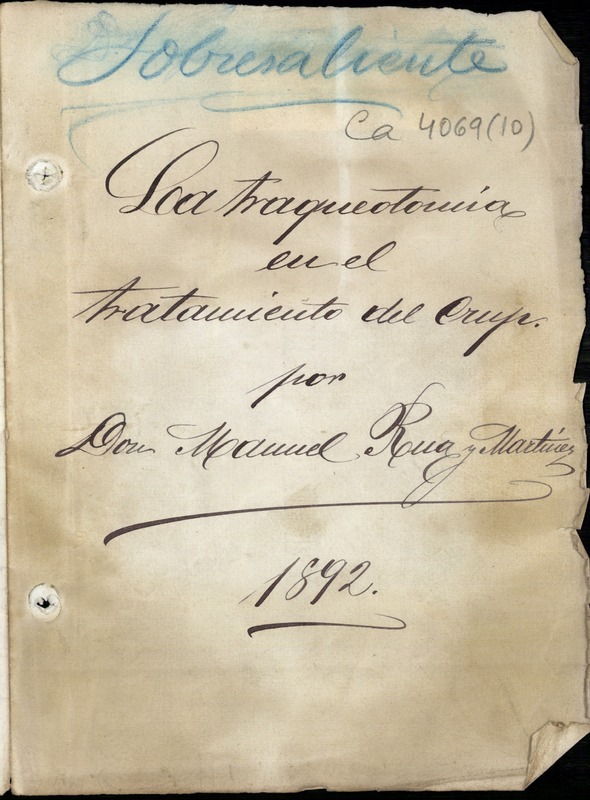 Sobresaliente
Ca 4069(10)
La traqueotomía
en el
tratamiento del Crup.
por
Don Manuel Rua y Martínez
1892.